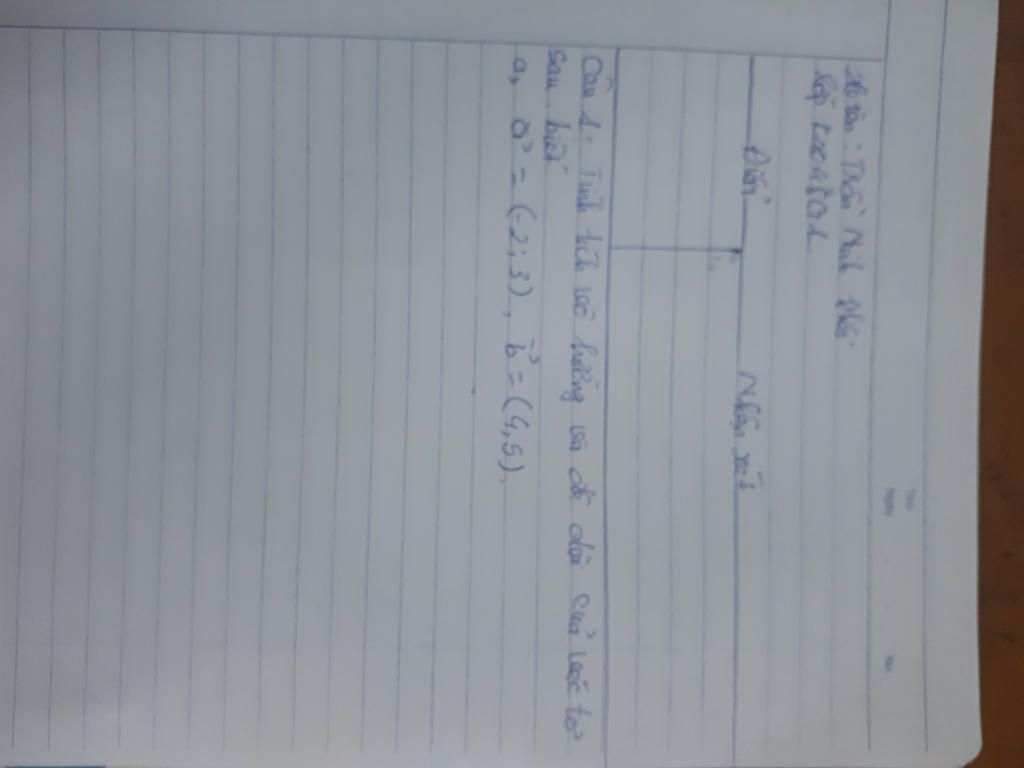 Họ tên: Trần Minh Phú.
Lớp
Điểm
Nhận xét
Câu 1. Tính tích vô hướng và độ dài của véc tơ
sau biết
a, a = (-2; 3), b = (4, 5).